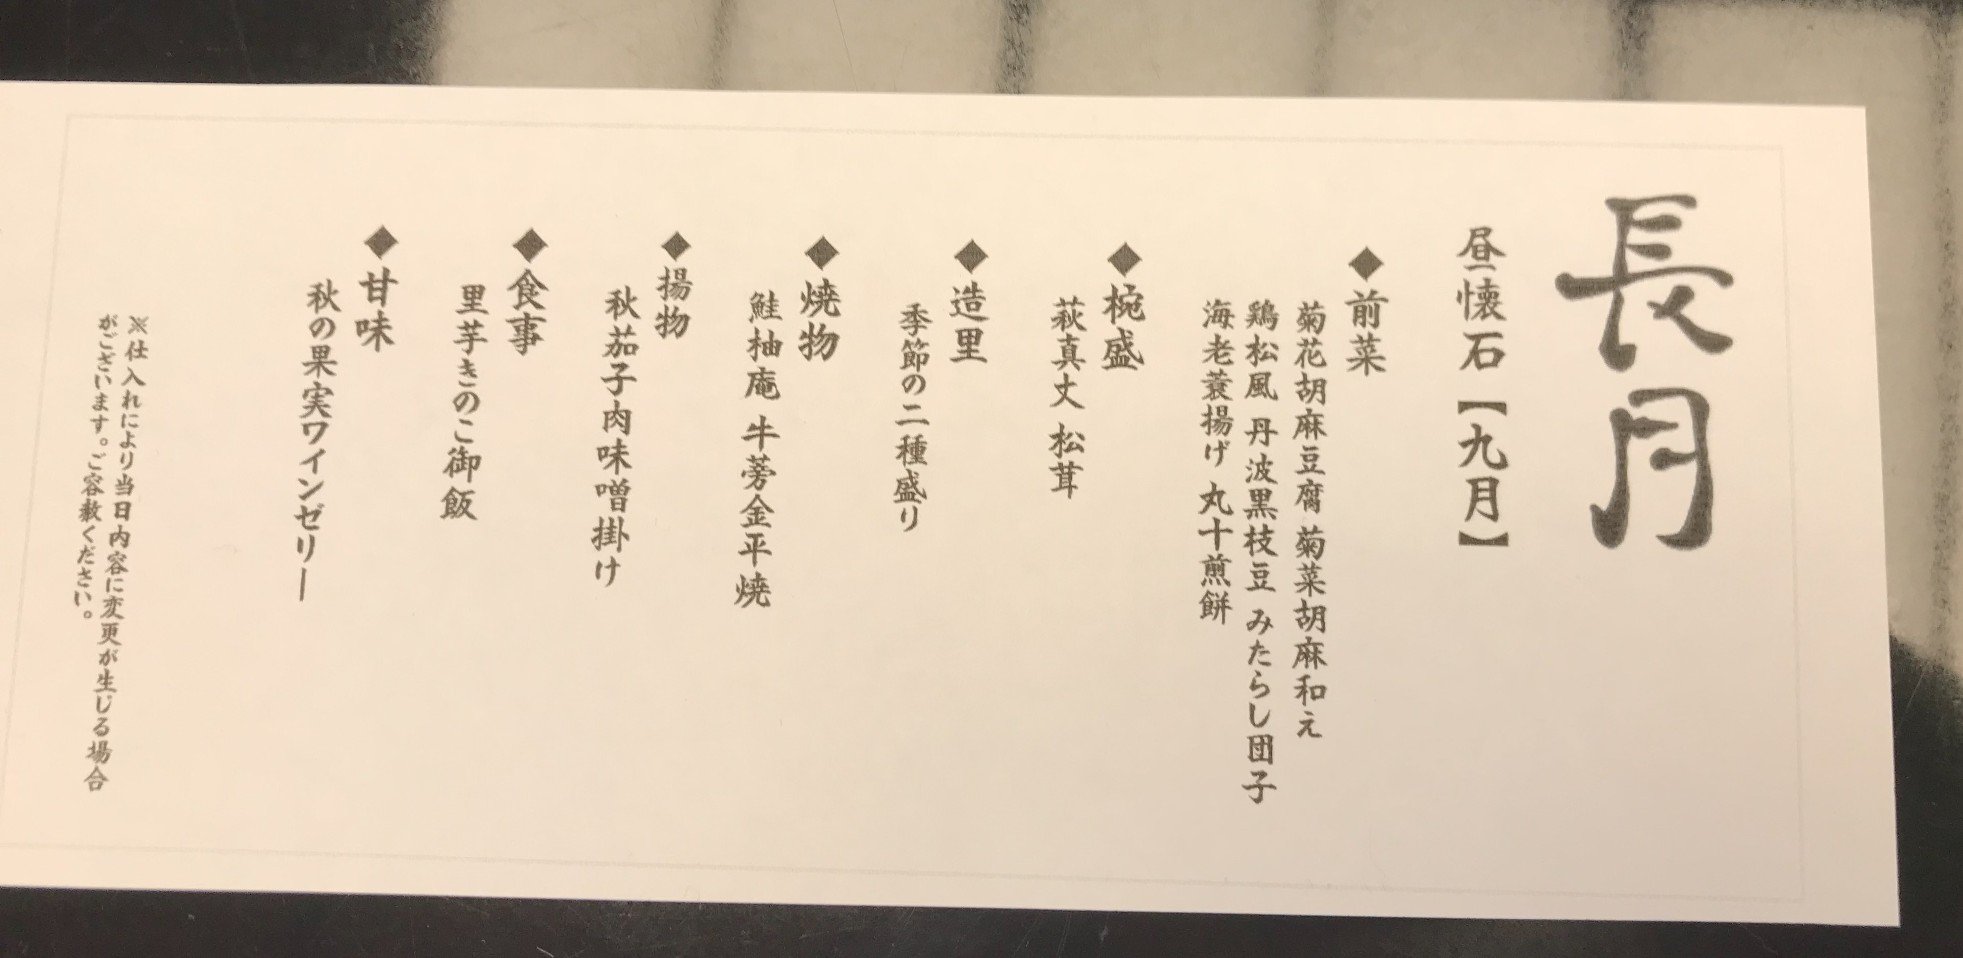 長月
昼懐石【九月】
◆前菜
菊花胡麻豆腐 菊菜胡麻和え
鶏松風 丹波黒枝豆 みたらし団子
海老蓑揚げ 丸十煎餅
◆椀盛
萩真丈 松茸
◆造里
季節の二種盛り
◆焼物
鮭柚庵 牛蒡金平焼
◆揚物
秋茄子肉味噌掛け
◆食事
里芋きのこ御飯
◆甘味
秋の果実ワインゼリー
※仕入れにより当日内容に変更が生じる場合
がございます。ご容赦ください。